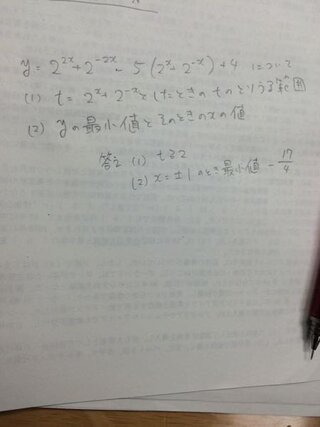 y = 2^{2x} + 2^{-2x} - 5 (2^x + 2^{-x}) + 4 について
(1) t = 2^x + 2^{-x} としたときの tのとりうる範囲
(2) yの最小値とそのときのxの値
答え (1) t≧2
(2) x = ±1のとき最小値 - 17/4